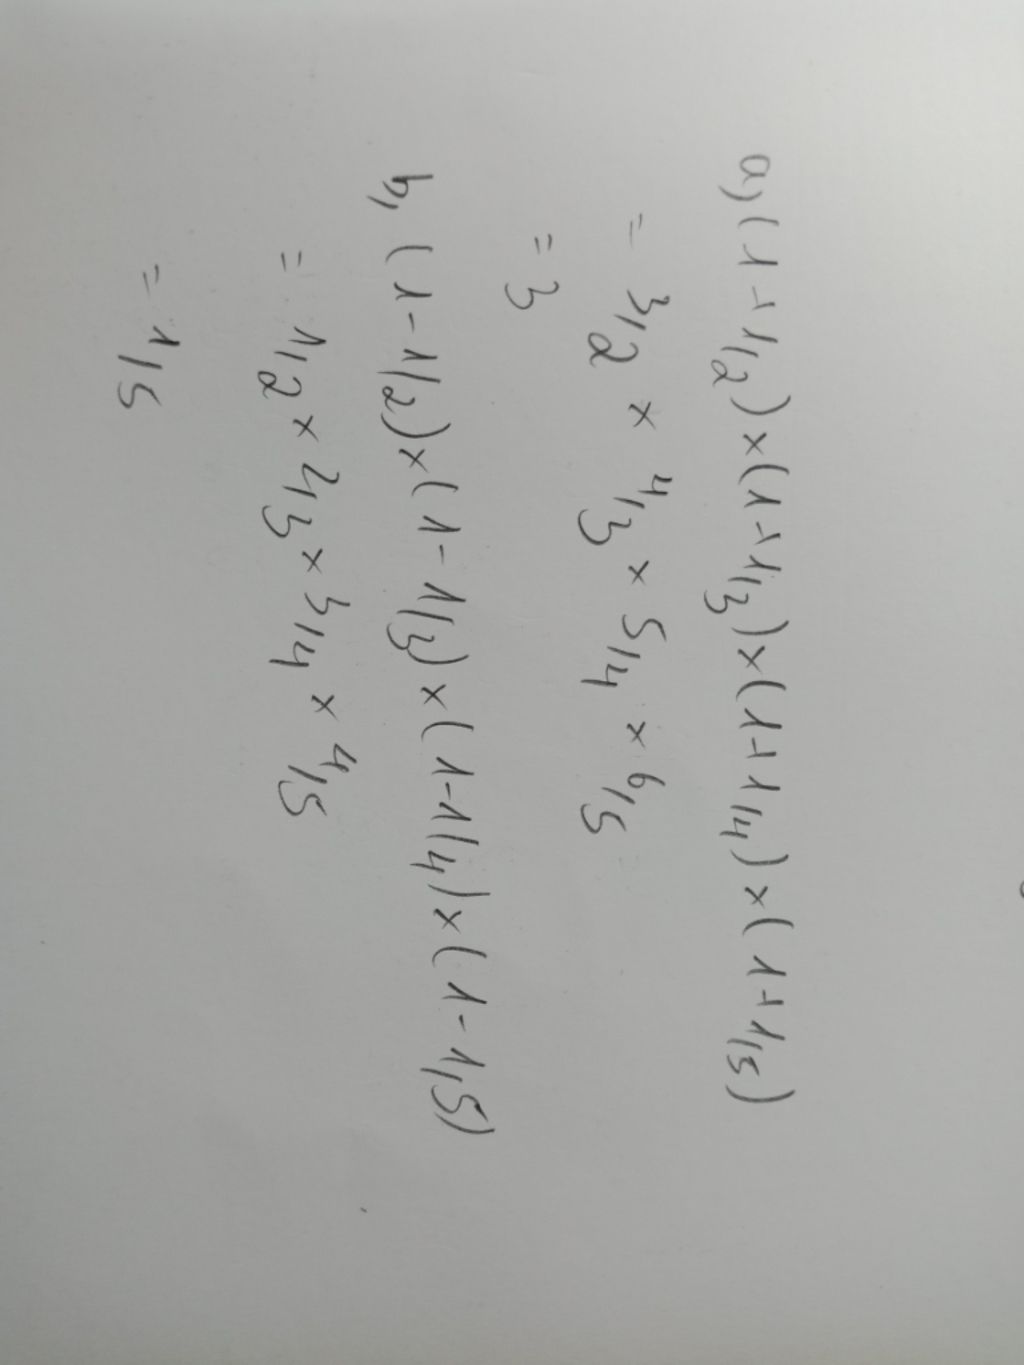 a, (1+1/2)×(1+1/3)×(1+1/4)×(1+1/5)
= 3/2 × 4/3 × 5/4 × 6/5
= 3
b, (1-1/2)×(1-1/3)×(1-1/4)×(1-1/5)
= 1/2 × 2/3 × 3/4 × 4/5
= 1/5